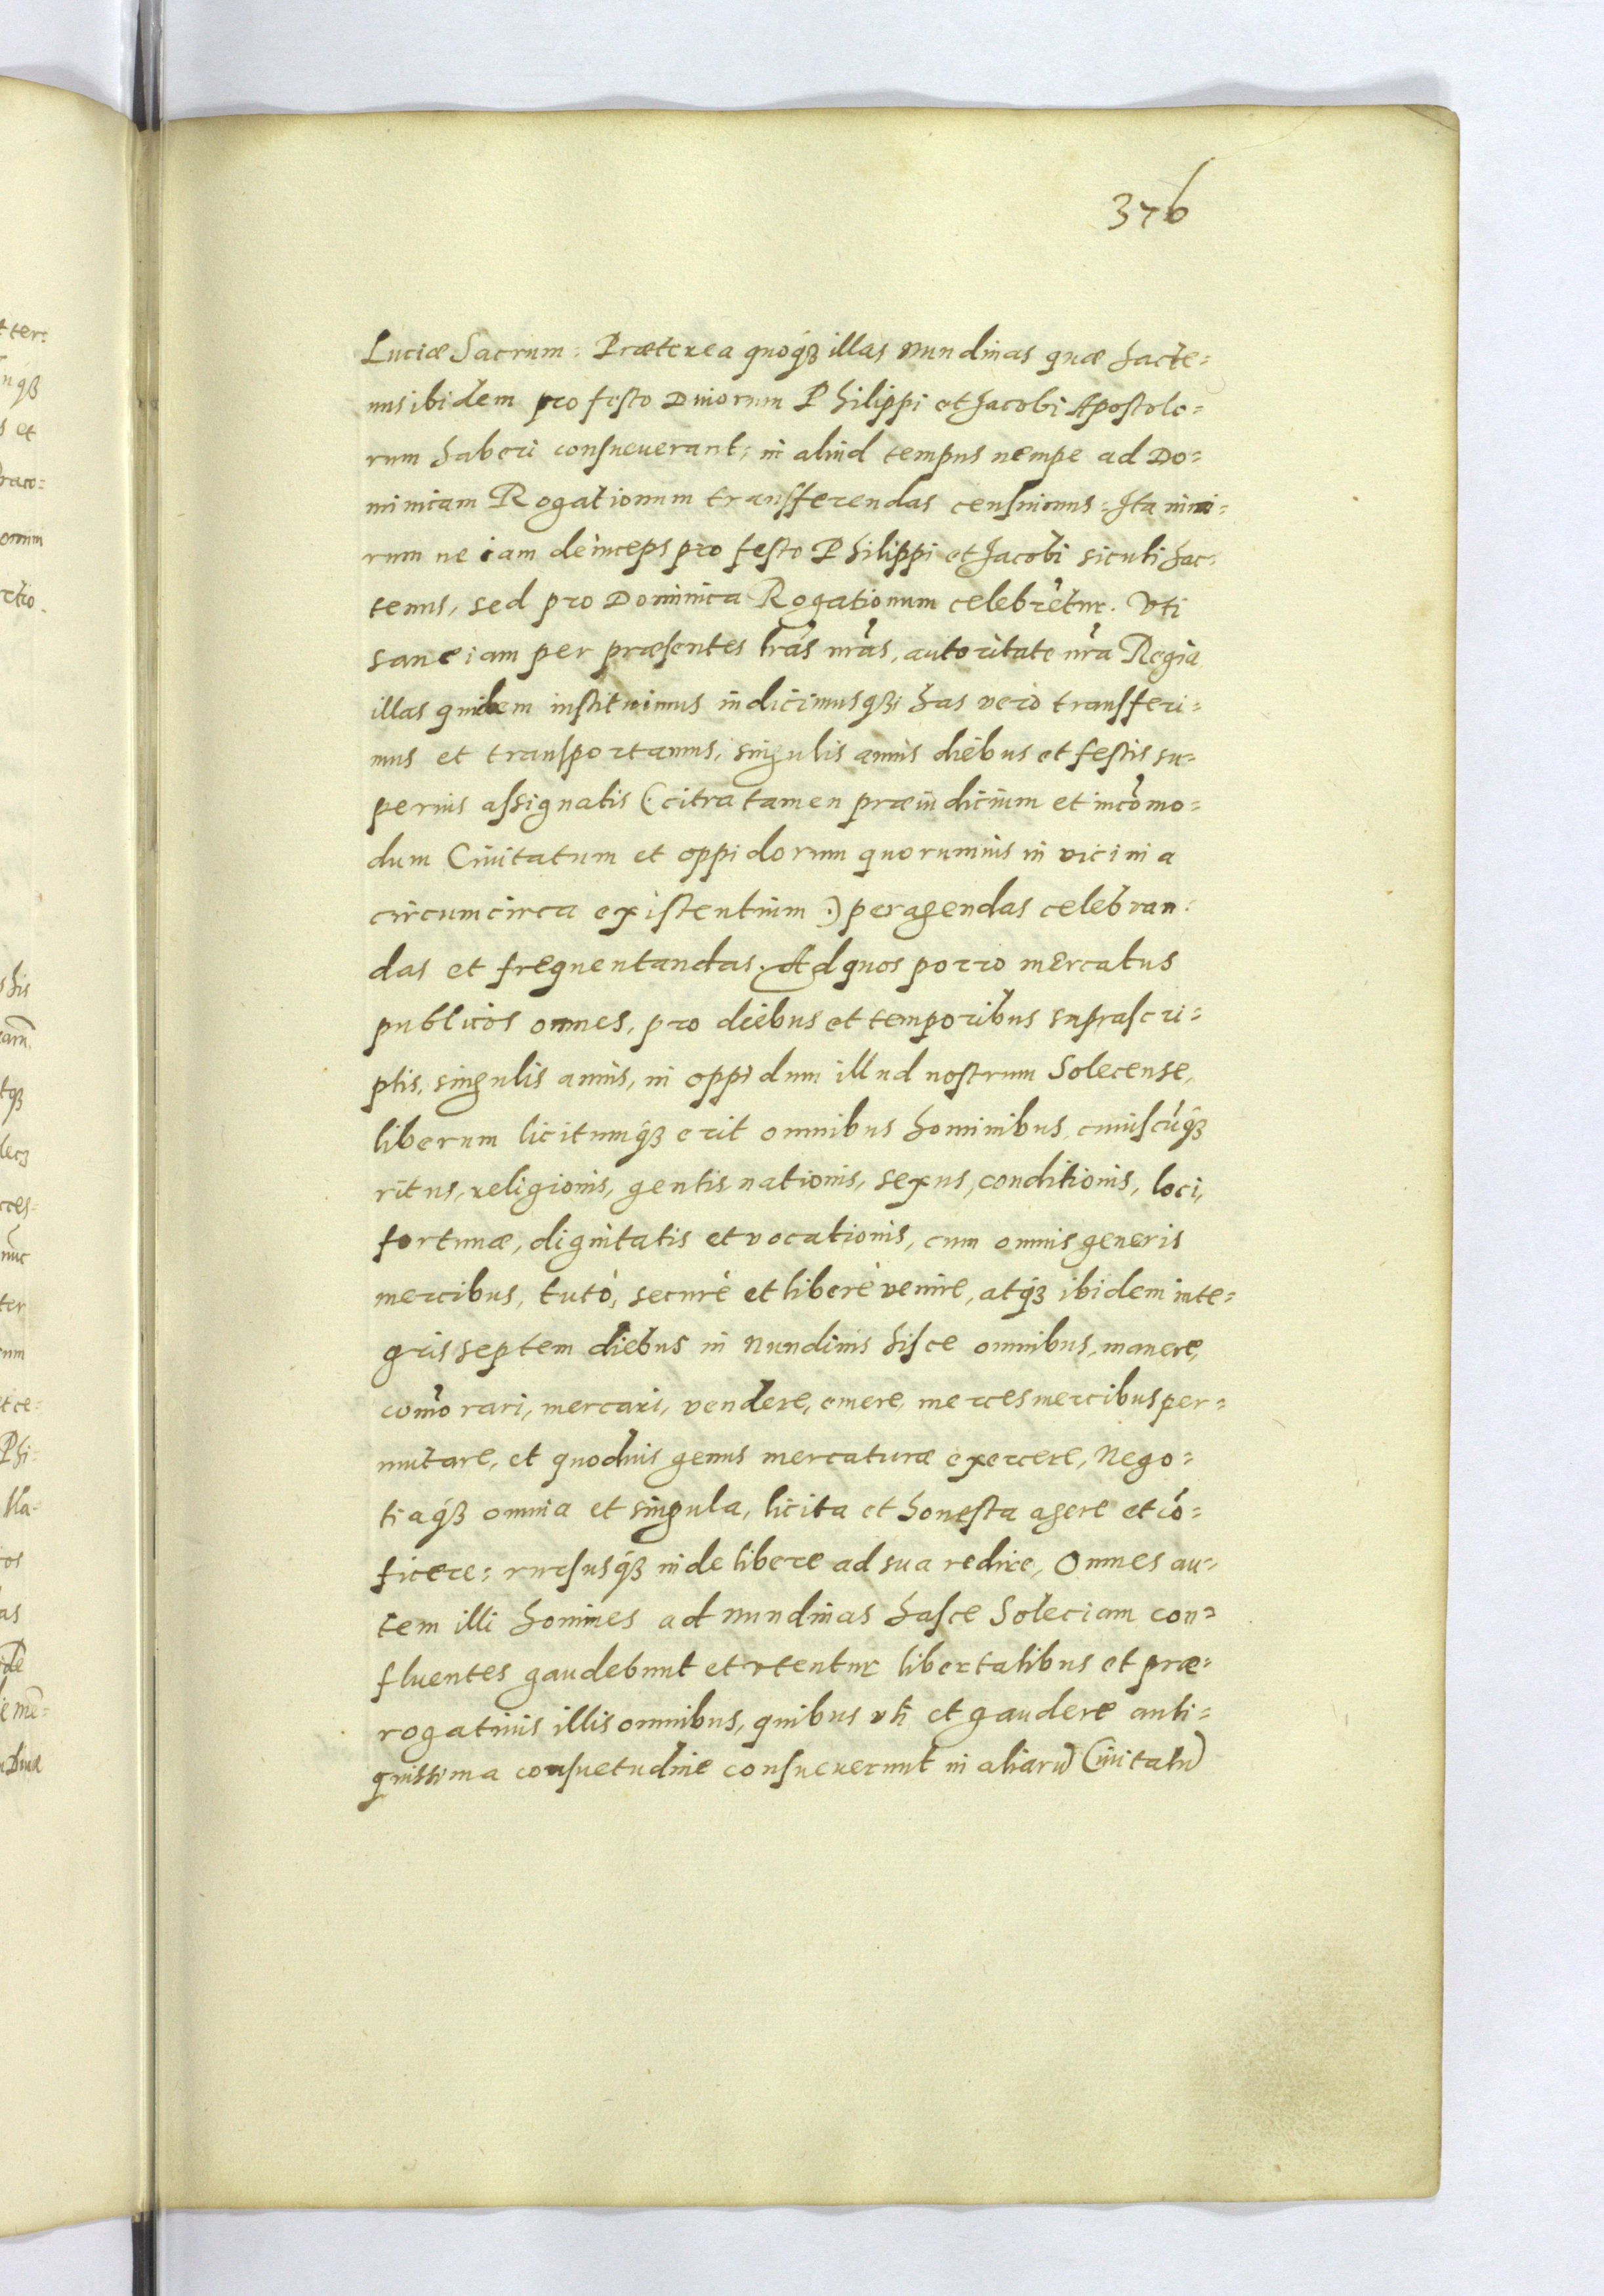 376
Luciæ Sacrum: Præterea quoq́ꝫ illas nundinas quæ hacte=
nus ibidem pro festo Diuorum Philippi et Jacobi Apostolo=
rum haberi consueuerant; in aliud tempus nempe ad Do=
minicam Rogationum transferendas censuimus: Ita nimi=
rum ne iam deinceps pro festo Philippi et Jacobi sicuti hac=
tenus, sed pro Dominica Rogationum celebrẽtur. Vti
sane iam per præsentes lr̃as nr̃as, autoritate nr̃a Regia
illas quidem instituimus indicimusq́ꝫ; has verò transferi=
mus et transportamus, singulis annis diebus et festis su=
perius assignatis (: citra tamen præiudicium et incom̃o=
dum Ciuitatum et oppidorum quorumuis in vicinia
circumcirca existentium :) peragendas celebran=
das et frequentandas. Ad quos porro mercatus
publicos omnes, pro diebus et temporibus suprascri=
ptis, singulis annis, in oppidum illud nostrum Solecense,
liberum licitumq́ꝫ erit omnibus hominibus, cuiuscũq́ꝫ
ritus, religionis, gentis nationis, sexus, conditionis, loci,
fortunæ, dignitatis et vocationis, cum omnis generis
mercibus, tutò, securè et liberè venire, atq́ꝫ ibidem inte=
gris septem diebus in nundinis hisce omnibus, manere,
com̃orari, mercari, vendere, emere, merces mercibus per=
mutare, et quoduis genus mercaturæ exercere, Nego=
tiaq́ꝫ omnia et singula, licita et honesta agere et cõ=
ficere: rursusq́ꝫ inde libere ad sua redire, Omnes au=
tem illi homines ad nundinas hasce Soleciam con=
fluentes gaudebunt et vtentur libertatibus et præ=
rogatiuis illis omnibus, quibus vti et gaudere anti=
quissima consuetudine consueuerunt in aliarũ Ciuitatũ